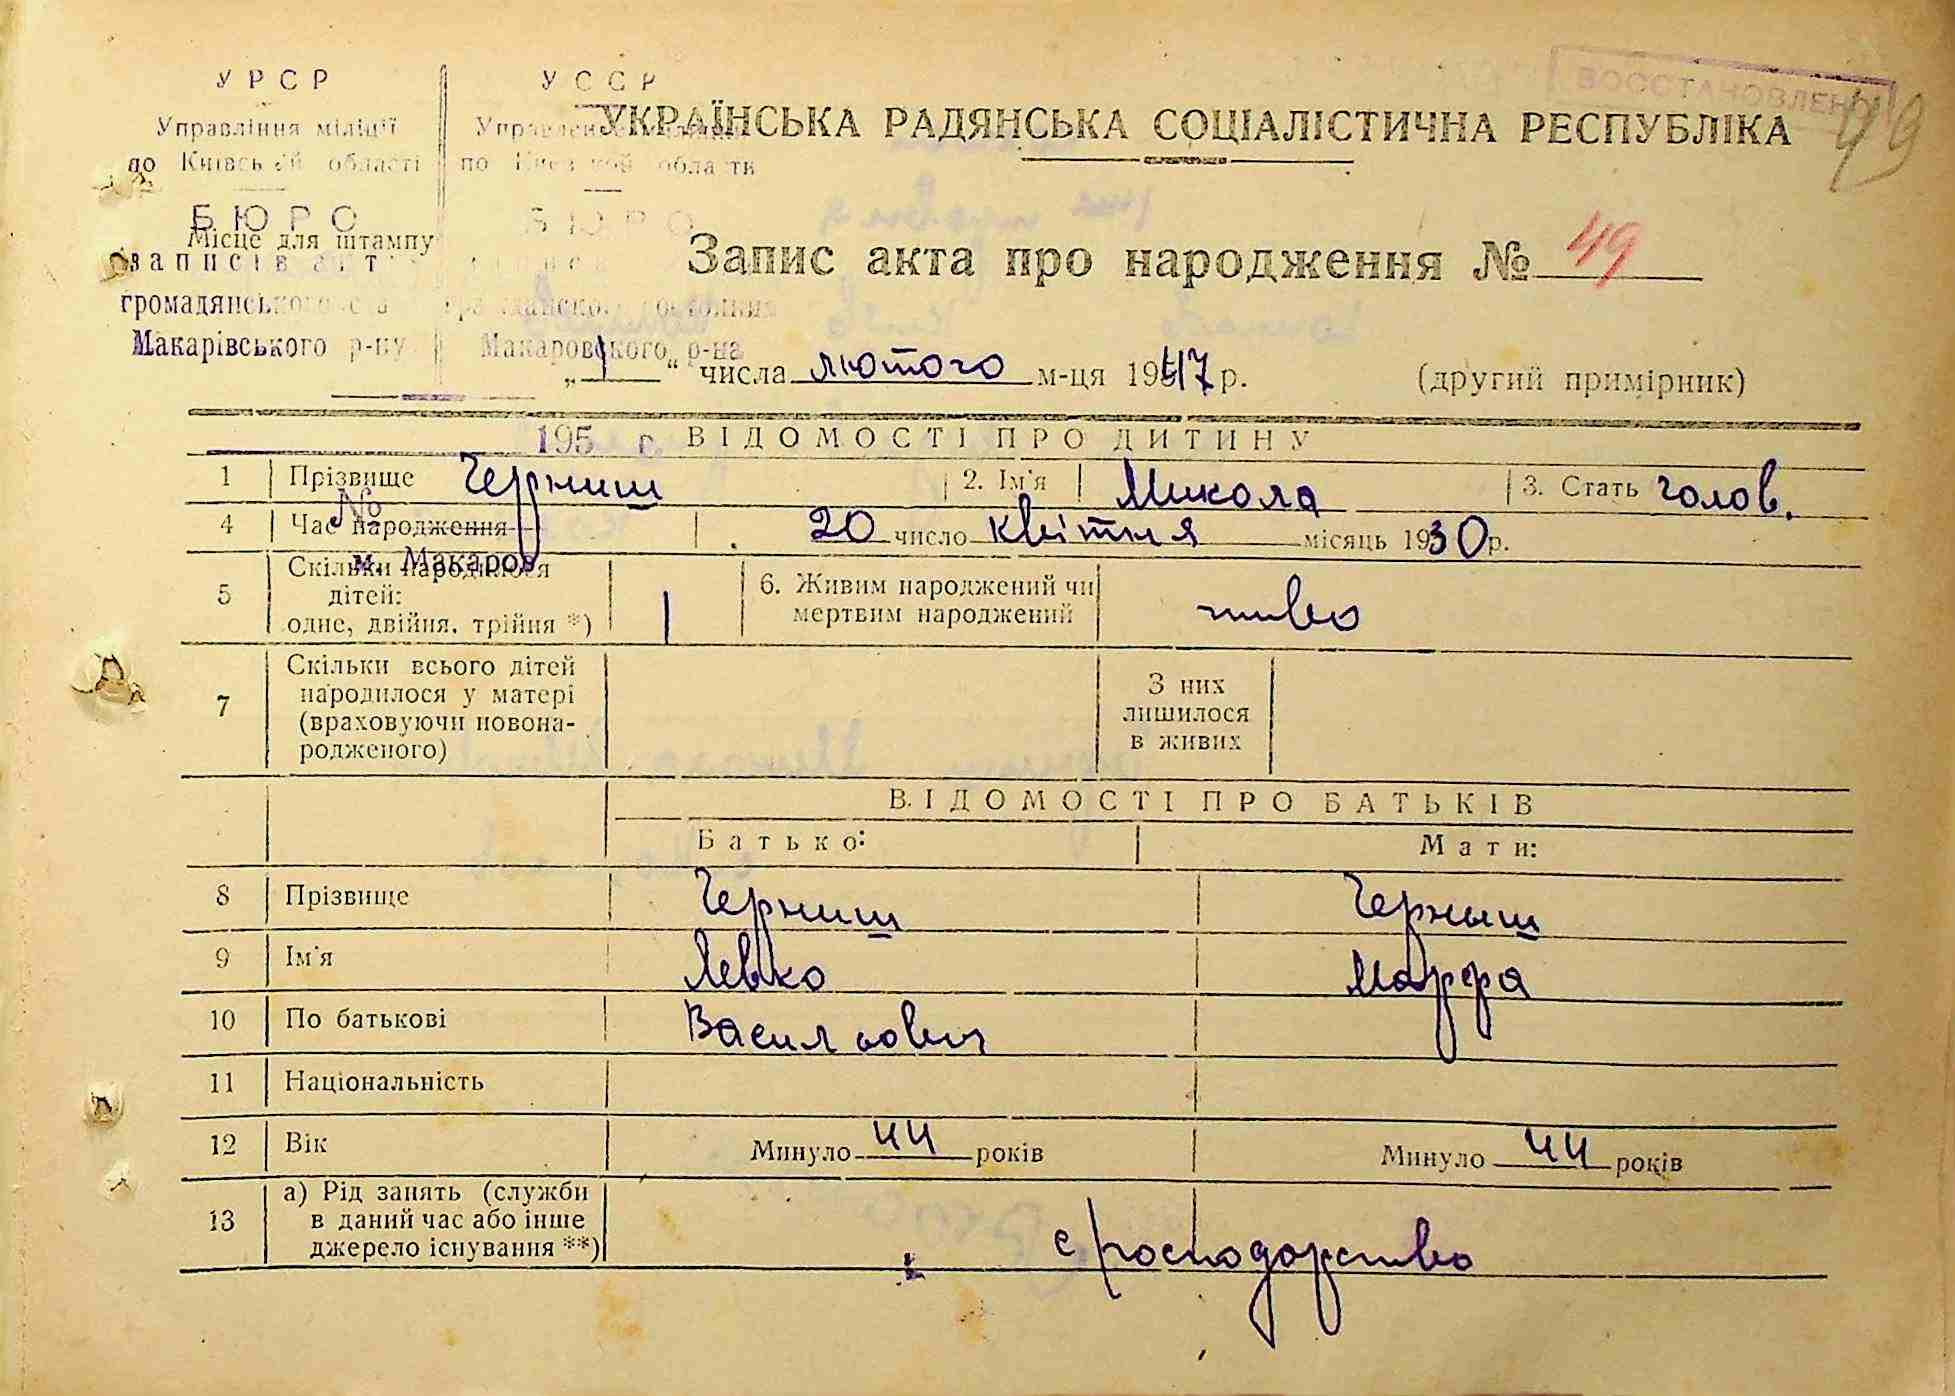 УРСР
Управління міліції
по Київській області
БЮРО
записів акт
громадянського
Макарівського р-ну
УССР
Управление милиции
по Киевской области
БЮРО
гражданского состояния
Макаровского р-на
195 г.
№
м. Макаров
ВОССТАНОВЛЕНО
49
УКРАЇНСЬКА РАДЯНСЬКА СОЦІАЛІСТИЧНА РЕСПУБЛІКА
Місце для штампу
Запис акта про народження № 49
„1“ числа лютого м-ця 1947 р. (другий примірник)
ВІДОМОСТІ ПРО ДИТИНУ
1 Прізвище Черниш 2. Ім'я Микола 3. Стать чолов.
4 Час народження 20 число квітня місяць 1930 р.
5 Скільки народилося
дітей:
одне, двійня, трійня *) 1
6. Живим народжений чи
мертвим народжений живо
7 Скільки всього дітей
народилося у матері
(враховуючи новона-
родженого)
З них
лишилося
в живих
ВІДОМОСТІ ПРО БАТЬКІВ
Батько: Мати:
8 Прізвище Черниш Черныш
9 Ім'я Левко Марфа
10 По батькові Васильович
11 Національність
12 Вік Минуло 44 років Минуло 44 років
13 а) Рід занять (служби
в даний час або інше
джерело існування **)
с/господарство